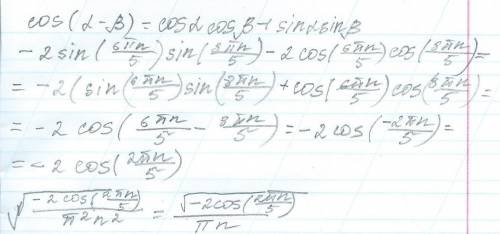 cos(α-β) = cosα cosβ + sinα sinβ
-2 sin(6πn/5) sin(8πn/5) - 2 cos(6πn/5) cos(8πn/5) =
= -2(sin(6πn/5) sin(8πn/5) + cos(6πn/5) cos(8πn/5) =
= -2 cos(6πn/5 - 8πn/5) = -2 cos(-2πn/5) =
= -2 cos(2πn/5)
√(-2 cos(2πn/5)/π²n²) = √(-2cos(2πn/5))/πn